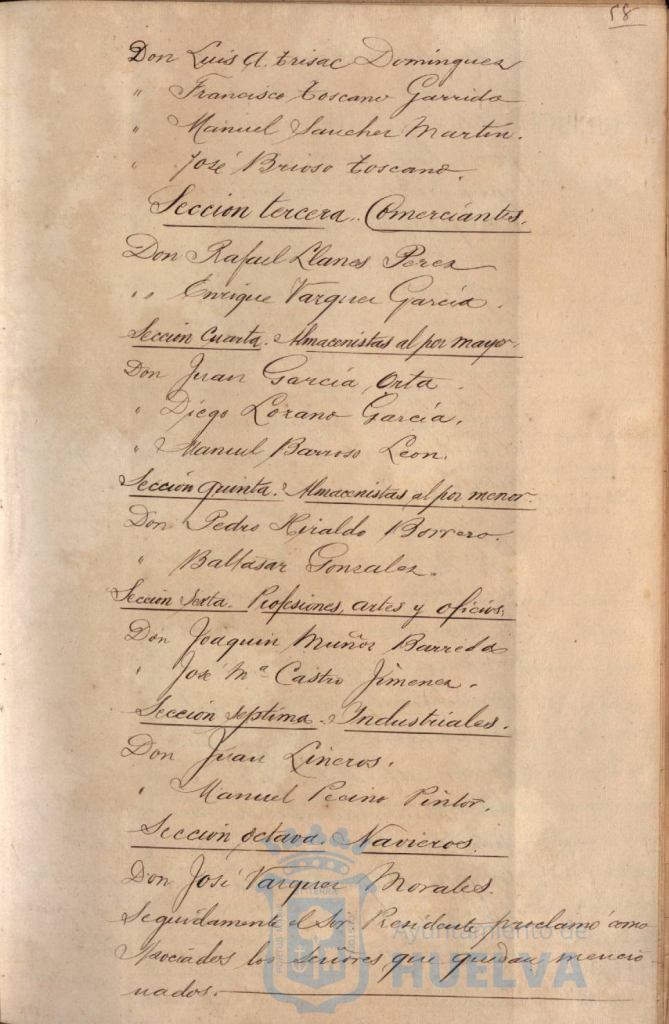 58
Don Luis A. Trisac Dominguez
" Francisco Toscano Garrido
" Manuel Sanchez Martín.
" José Brioso Toscano.
Seccion tercera. Comerciantes.
Don Rafael Llanes Perez
" Enrique Vazquez García.
Sección Cuarta. Almacenistas al por mayor.
Don Juan García Orta.
" Diego Lozano García.
" Manuel Barroso Leon.
Sección quinta. Almacenistas al por menor
Don Pedro Hiraldo Borrero.
" Baltasar Gonzalez.
Sección Sexta. Profesiones, artes y oficios.
Don Joaquin Muñoz Barreda
" José Mª Castro Jimenez.
Sección Septima. Industriales.
Don Juan Lineros.
" Manuel Pecino Pintor.
Sección octava. Navieros.
Don José Vazquez Morales.
Seguidamente el Sor Presidente proclamó como
Asociados los Señores que quedan mencio
nados.
Ayuntamiento de
HUELVA